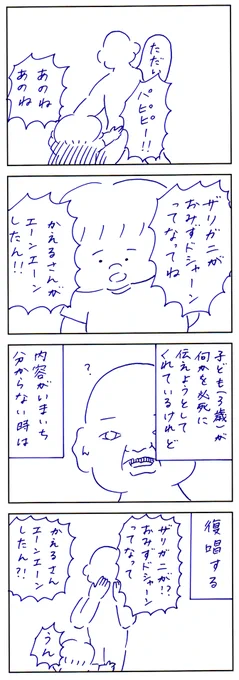 ただい
パピピー!!
あのね
あのね
ザリガニが
おみずドシャーン
ってなってね
かえるさんが
エーンエーン
したん!!
子ども(3歳)が
何かを必死に
伝えようとして
くれているけれど
?
内容がいまいち
分からない時は
復唱する
ザリガニが!?
おみずドシャーン
ってなって
かえるさん
エーンエーン
したん?!
うん